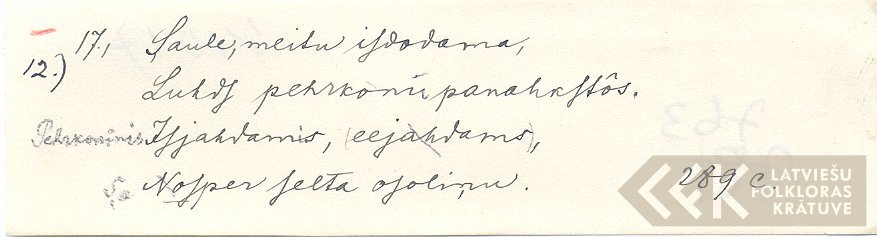 17., Saule, meitu isdodama,
12.) Luhds pehrkoni panahkstôs.
Pehrkoninis Isjahdamis, (eejahdams),
Nosper selta osoliņu. 289 c.
LATVIEŠU
FOLKLORAS
KRĀTUVE